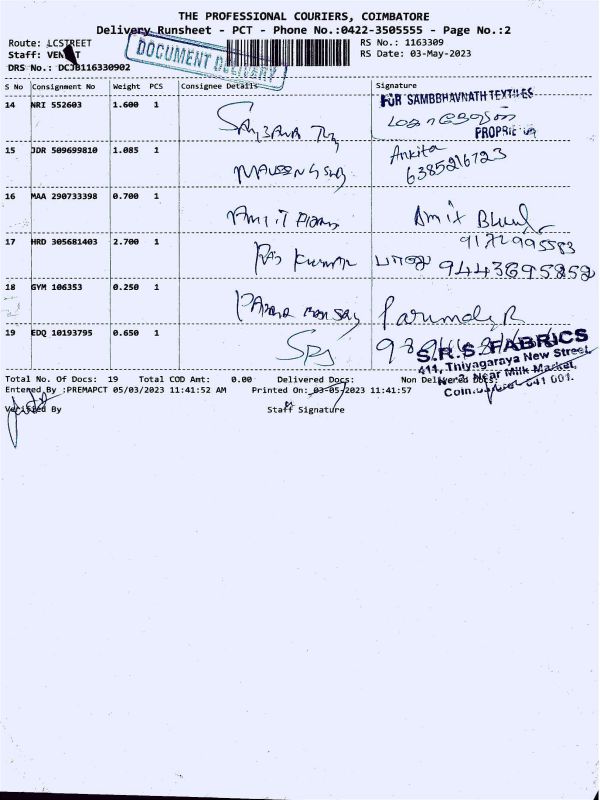 THE PROFESSIONAL COURIERS, COIMBATORE
Delivery Runsheet - PCT - Phone No.:0422-3505555 - Page No.:2
Route: LCSTREET
DOCUMENT DELIVERY
RS No.: 1163309
Staff: VENKAT
RS Date: 03-May-2023
DRS No.: DCJB116330902
S No Consignment No Weight PCS Consignee Details Signature
14 NRI 552603 1.600 1
FOR SAMBBHAVNATH TEXTILES
PROPRIETOR
15 JDR 509699810 1.085 1
Ankita
6385216723
16 MAA 290733398 0.700 1
Amit
17 HRD 305681403 2.700 1
Raj Kumar
9443695852
18 GYM 106353 0.250 1
19 EDQ 10193795 0.650 1
SRS
S.R.S. FABRICS
411, Thiyagaraya New Street,
Near Milk Market,
641 001.
Total No. Of Docs: 19 Total COD Amt: 0.00 Delivered Docs: Non Delivered Docs:
Entered By :PREMAPCT 05/03/2023 11:41:52 AM Printed On: 03-05-2023 11:41:57
Verified By Staff Signature